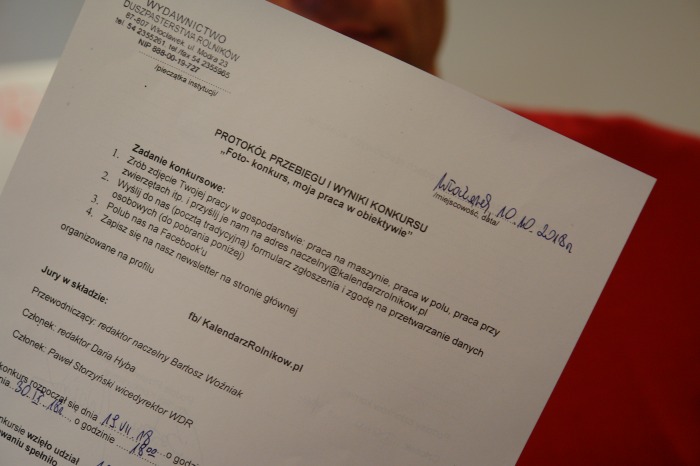 WYDAWNICTWO
DUSZPASTERSTWA ROLNIKÓW
87-807 Włocławek, ul. Modra 23
tel. 54 2355261, tel./fax 54 2355965
NIP 888-00-19-727
/pieczątka instytucji/
Włocławek, 10.10.2018r
/miejscowość, data/
PROTOKÓŁ PRZEBIEGU I WYNIKI KONKURSU
„Foto- konkurs, moja praca w obiektywie”
Zadanie konkursowe:
1. Zrób zdjęcie Twojej pracy w gospodarstwie: praca na maszynie, praca w polu, praca przy
zwierzętach itp. i przyślij je nam na adres naczelny@kalendarzrolnikow.pl
2. Wyślij do nas (pocztą tradycyjną) formularz zgłoszenia i zgodę na przetwarzanie danych
osobowych (do pobrania poniżej)
3. Polub nas na Facebook'u
4. Zapisz się na nasz newsletter na stronie głównej
organizowane na profilu
fb/ KalendarzRolnikow.pl
Jury w składzie:
Przewodniczący: redaktor naczelny Bartosz Woźniak
Członek: redaktor Daria Hyba
Członek: Paweł Storzyński wicedyrektor WDR
konkurs rozpoczął się dnia 19.VII.18 o godzinie
30.IX.18r o godzinie 18:00
wzięło udział
spełniło